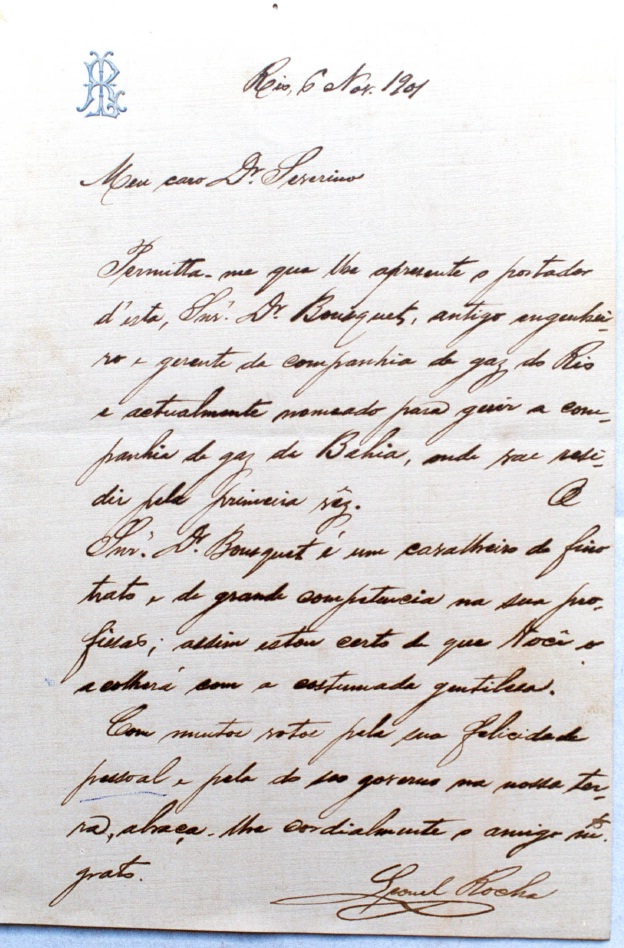 LR
Rio, 6 Nov. 1901
Meu caro Dr. Severino
Permitta-me que lhe apresente o portador
d'esta, Snr. Dr. Bousquet, antigo engenhei-
ro e gerente da companhia de gaz do Rio
e actualmente nomeado para gerir a com-
panhia de gaz da Bahia, onde vae resi-
dir pela primeira vêz. O
Snr. Dr. Bousquet é um cavalheiro de fino
trato e de grande competencia na sua pro-
fissão; assim estou certo de que Você o
acolherá com a costumada gentilesa.
Com muitos votos pela sua felicidade
pessoal e pela do seo governo na nossa ter-
ra, abraça-lhe cordialmente o amigo mto.
grato.
Leonel Rocha